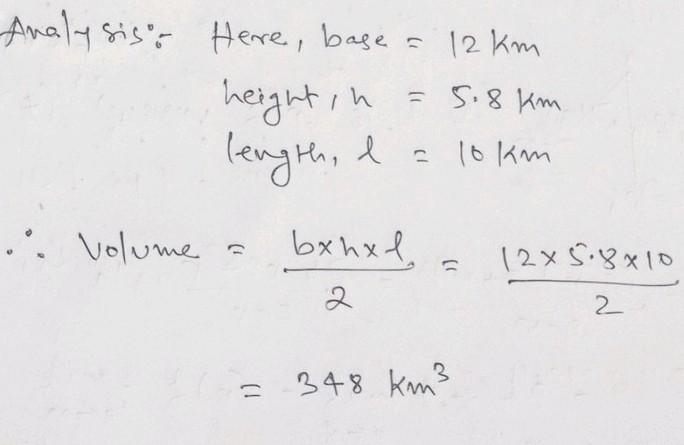 Analysis:- Here, base = 12 Km
height, h = 5.8 Km
length, l = 10 Km
∴ Volume = b×h×l/2 = 12×5.8×10/2
= 348 Km³